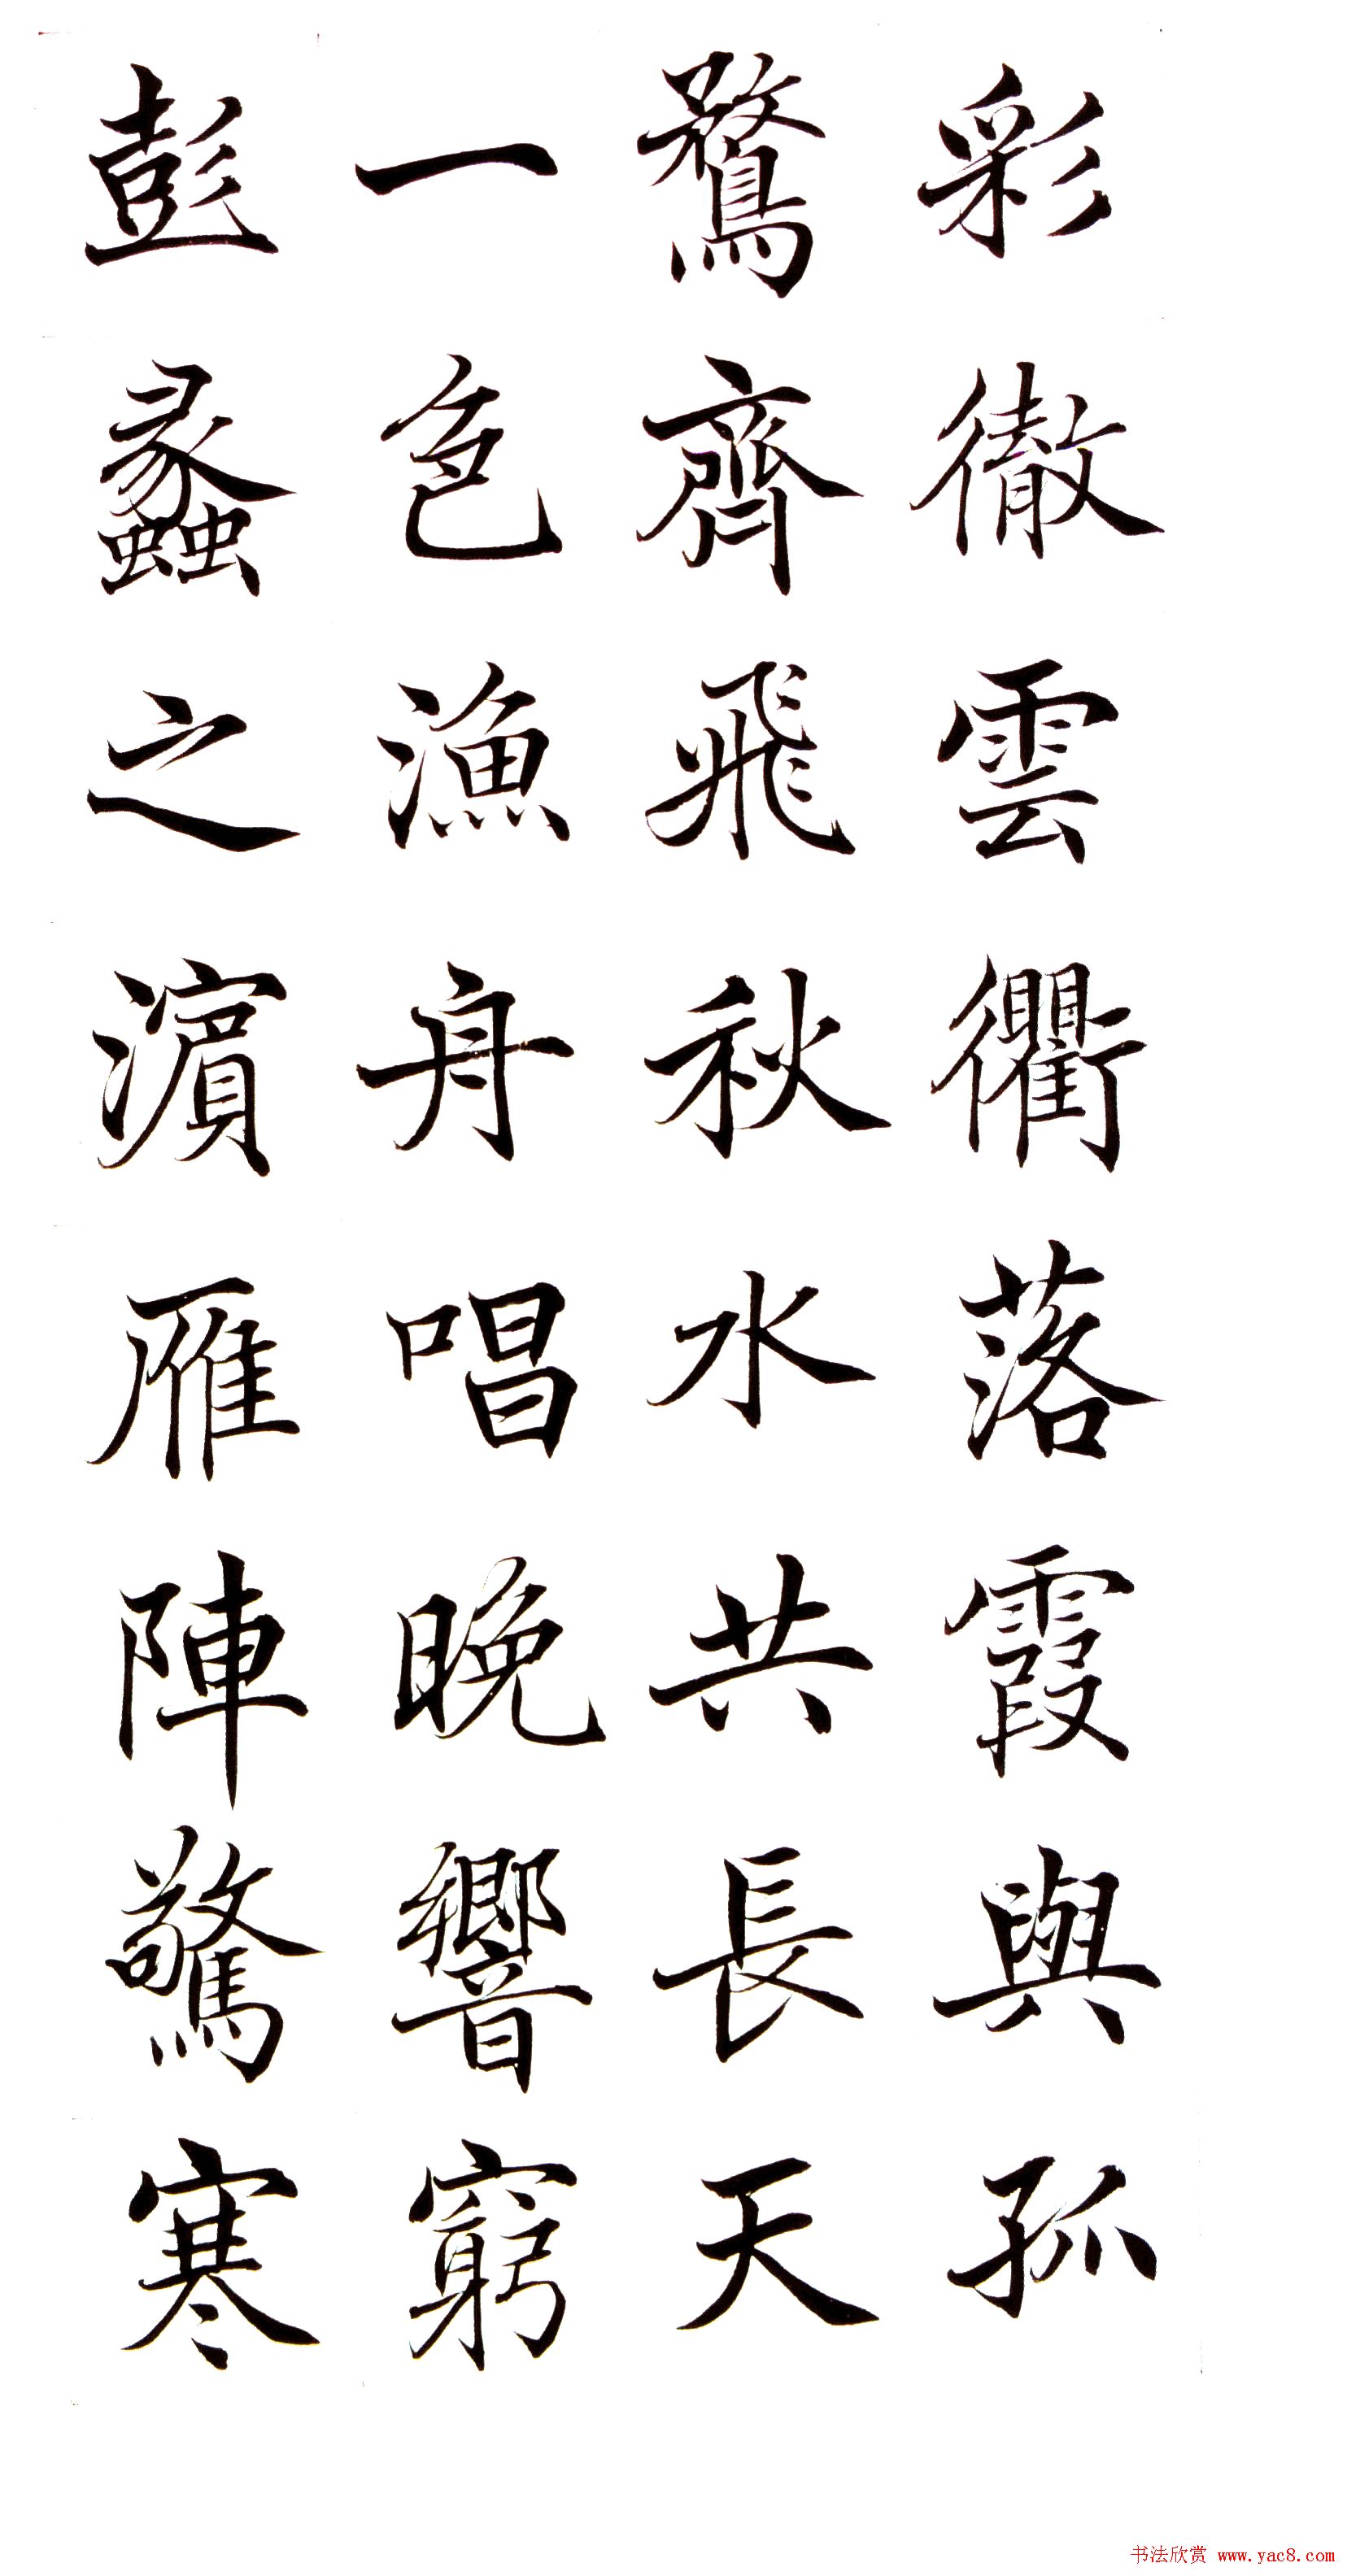 彩徹雲衢落霞與孤
鶩齊飛秋水共長天
一色漁舟唱晚響窮
彭蠡之濱雁陣驚寒
书法欣赏 www.yac8.com